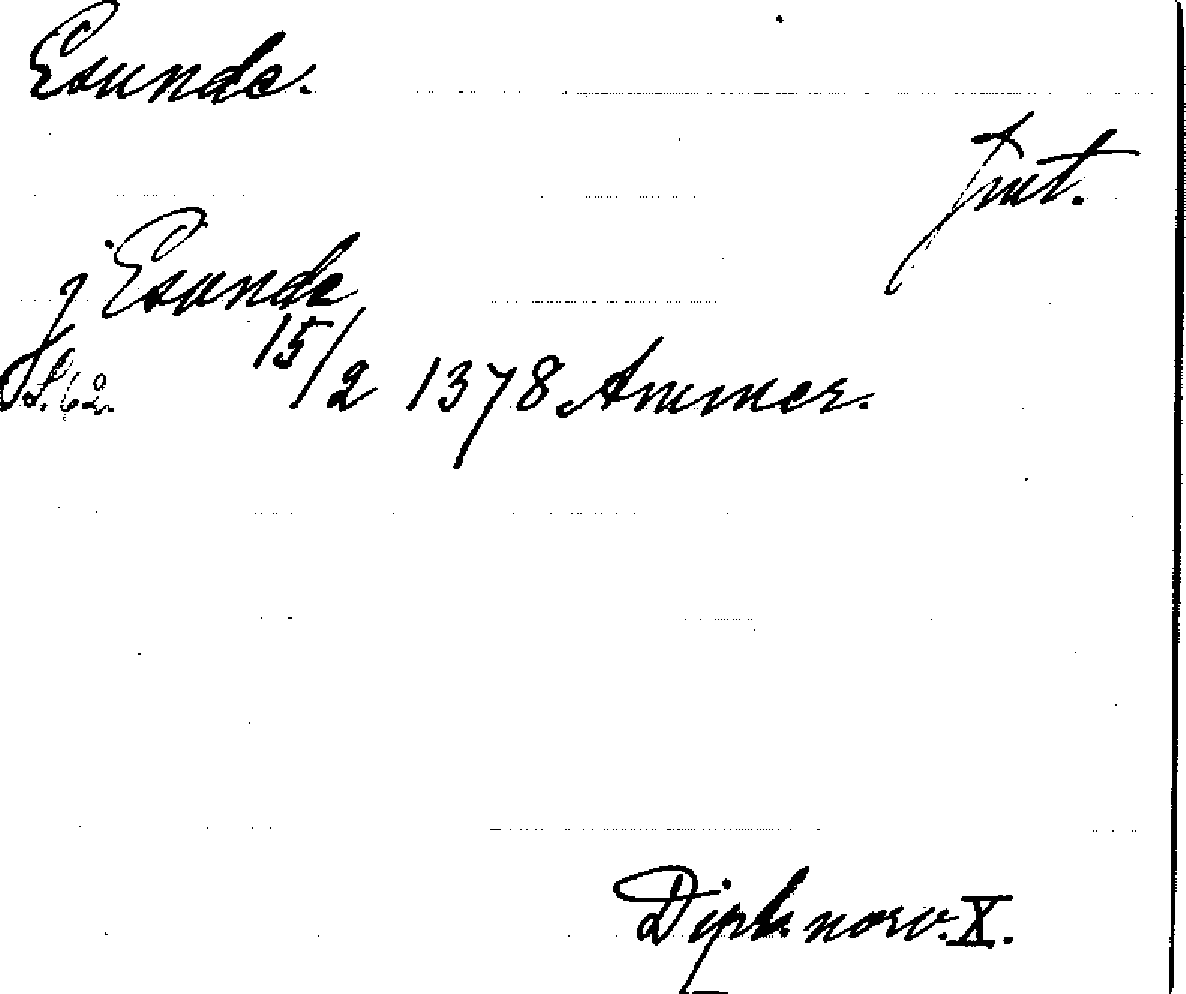 Esunde.
Jmt.
j Esunde
S. 62. 15/2 1378 Ammer.
Dipl. norv. X.